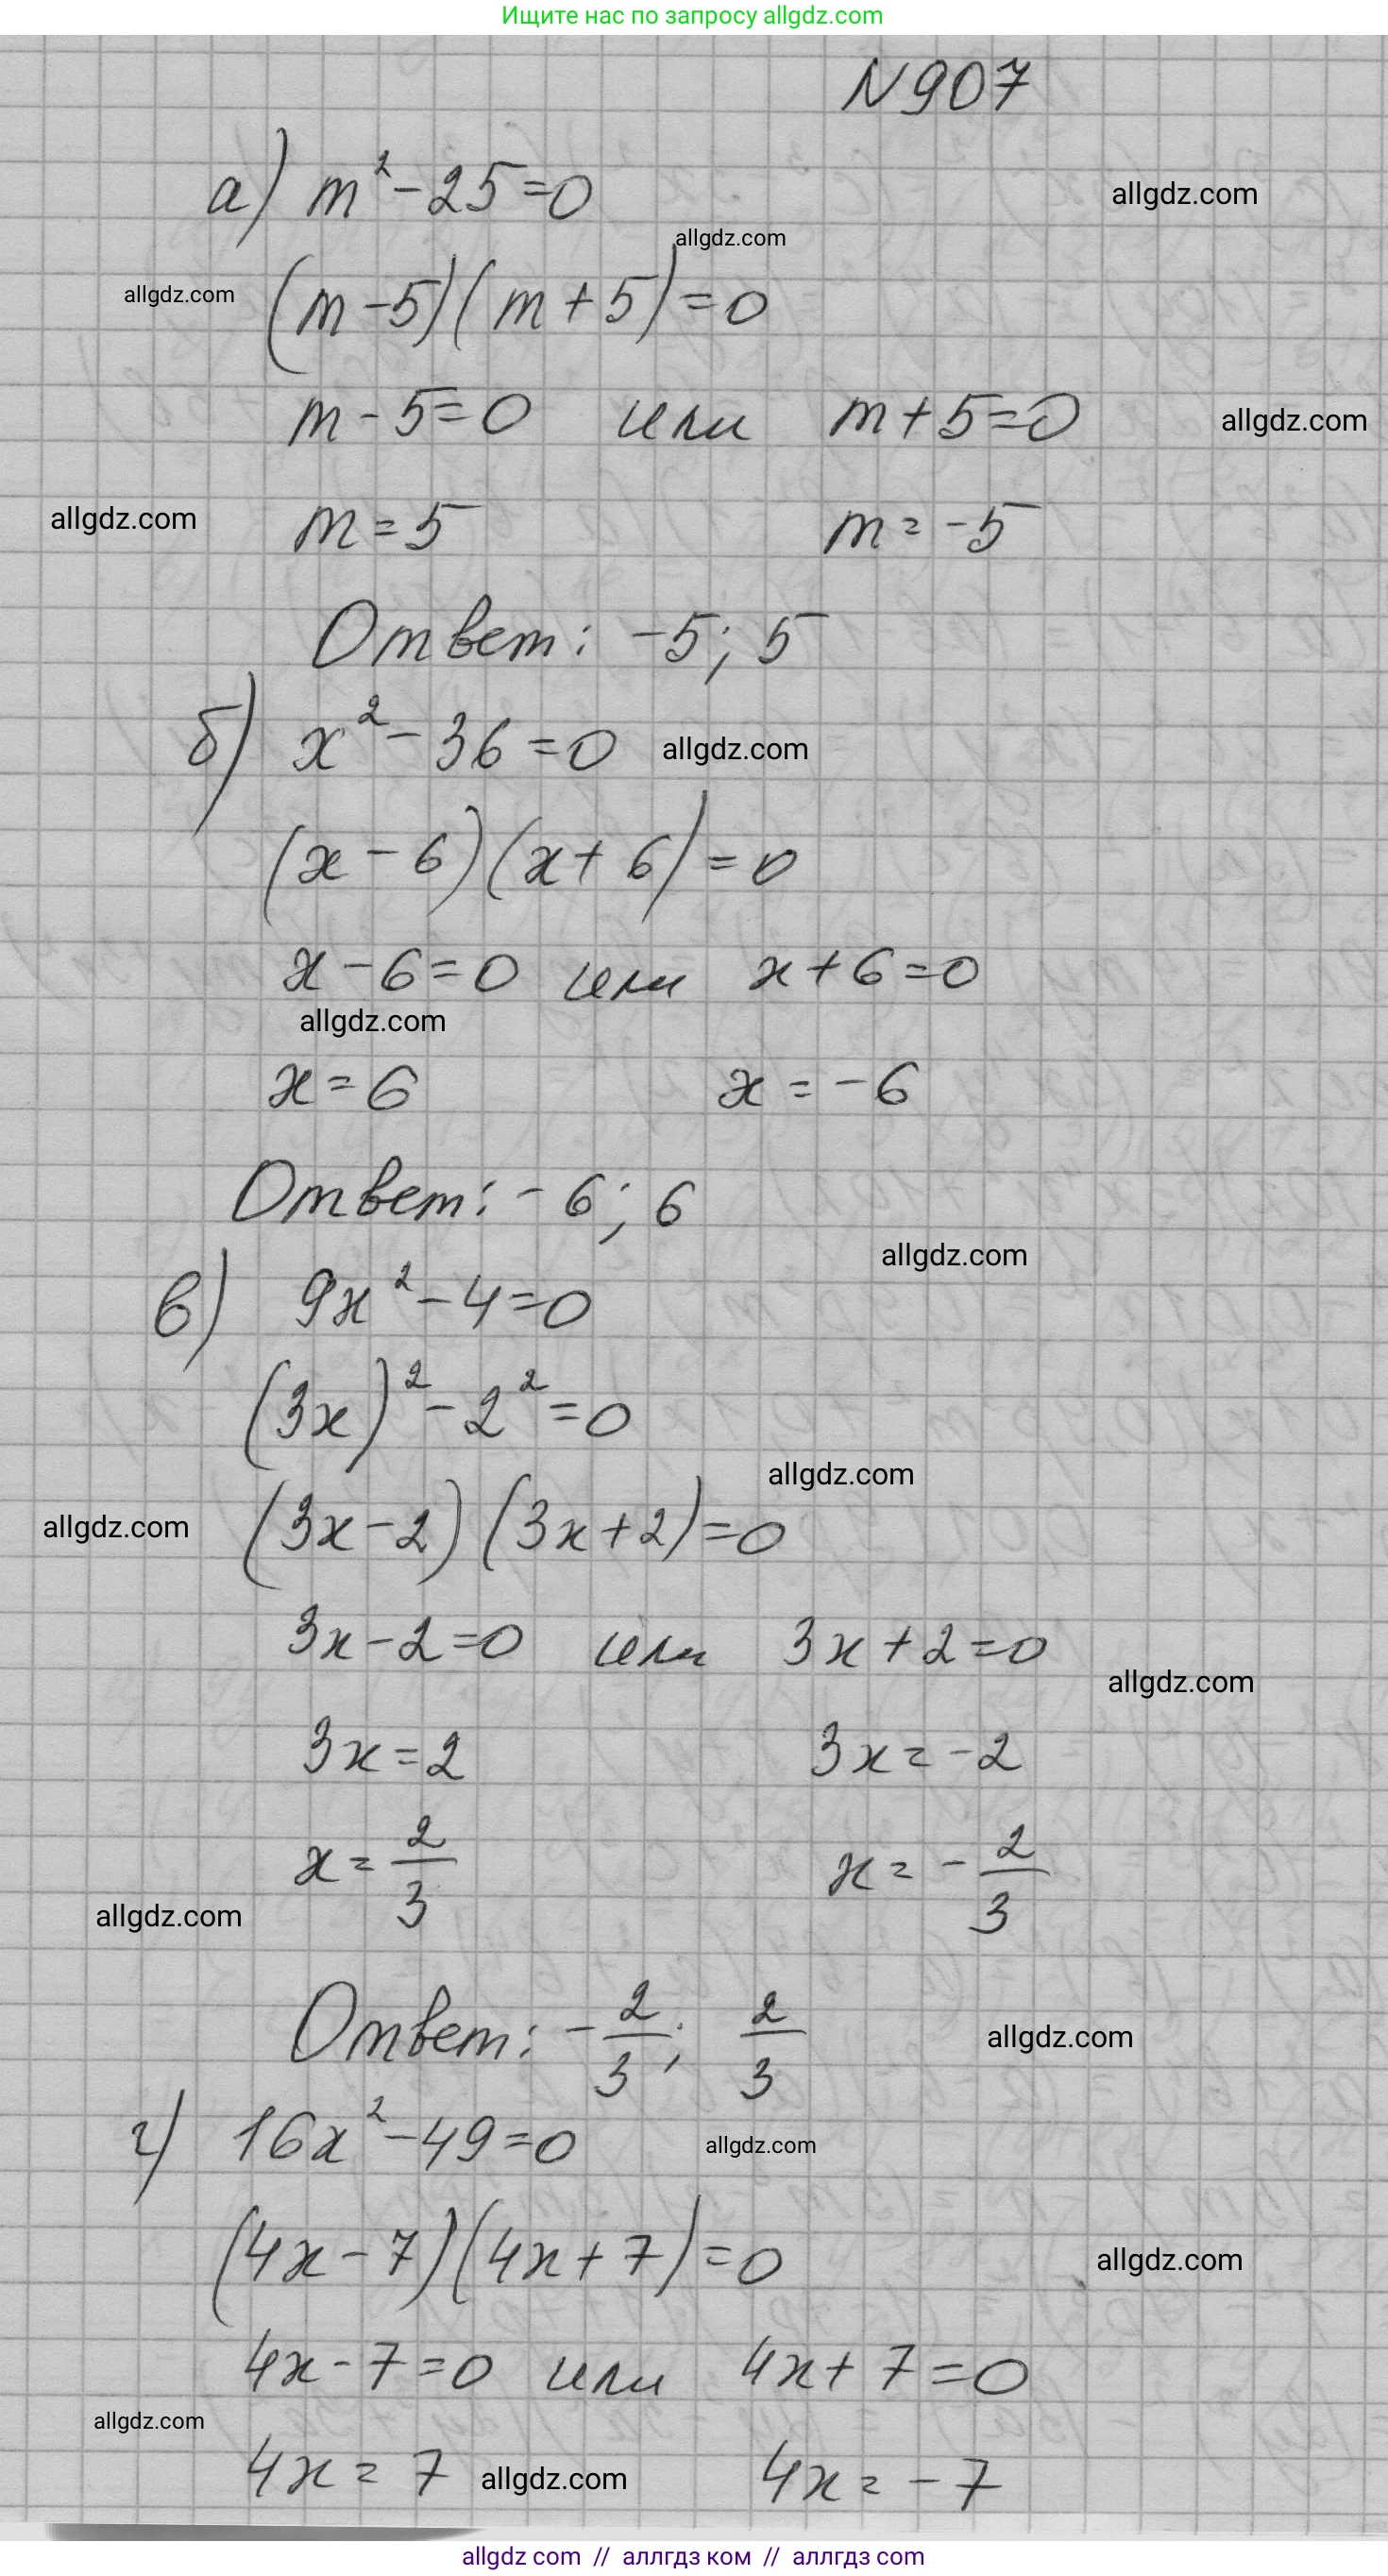 Ищите нас по запросу allgdz.com
N907
а) m²-25=0
allgdz.com
allgdz.com
allgdz.com
(m-5)(m+5)=0
m-5=0 или m+5=0
allgdz.com
allgdz.com
m=5 m=-5
Ответ: -5; 5
б) x²-36=0
allgdz.com
(x-6)(x+6)=0
x-6=0 или x+6=0
allgdz.com
x=6 x=-6
Ответ: -6; 6
allgdz.com
в) 9x²-4=0
(3x)²-2²=0
allgdz.com
allgdz.com
(3x-2)(3x+2)=0
3x-2=0 или 3x+2=0
allgdz.com
3x=2 3x=-2
x=2/3 x=-2/3
allgdz.com
Ответ: -2/3; 2/3
allgdz.com
г) 16x²-49=0
allgdz.com
(4x-7)(4x+7)=0
allgdz.com
4x-7=0 или 4x+7=0
allgdz.com
4x=7 4x=-7
allgdz.com
allgdz com // аллгдз ком // аллгдз com